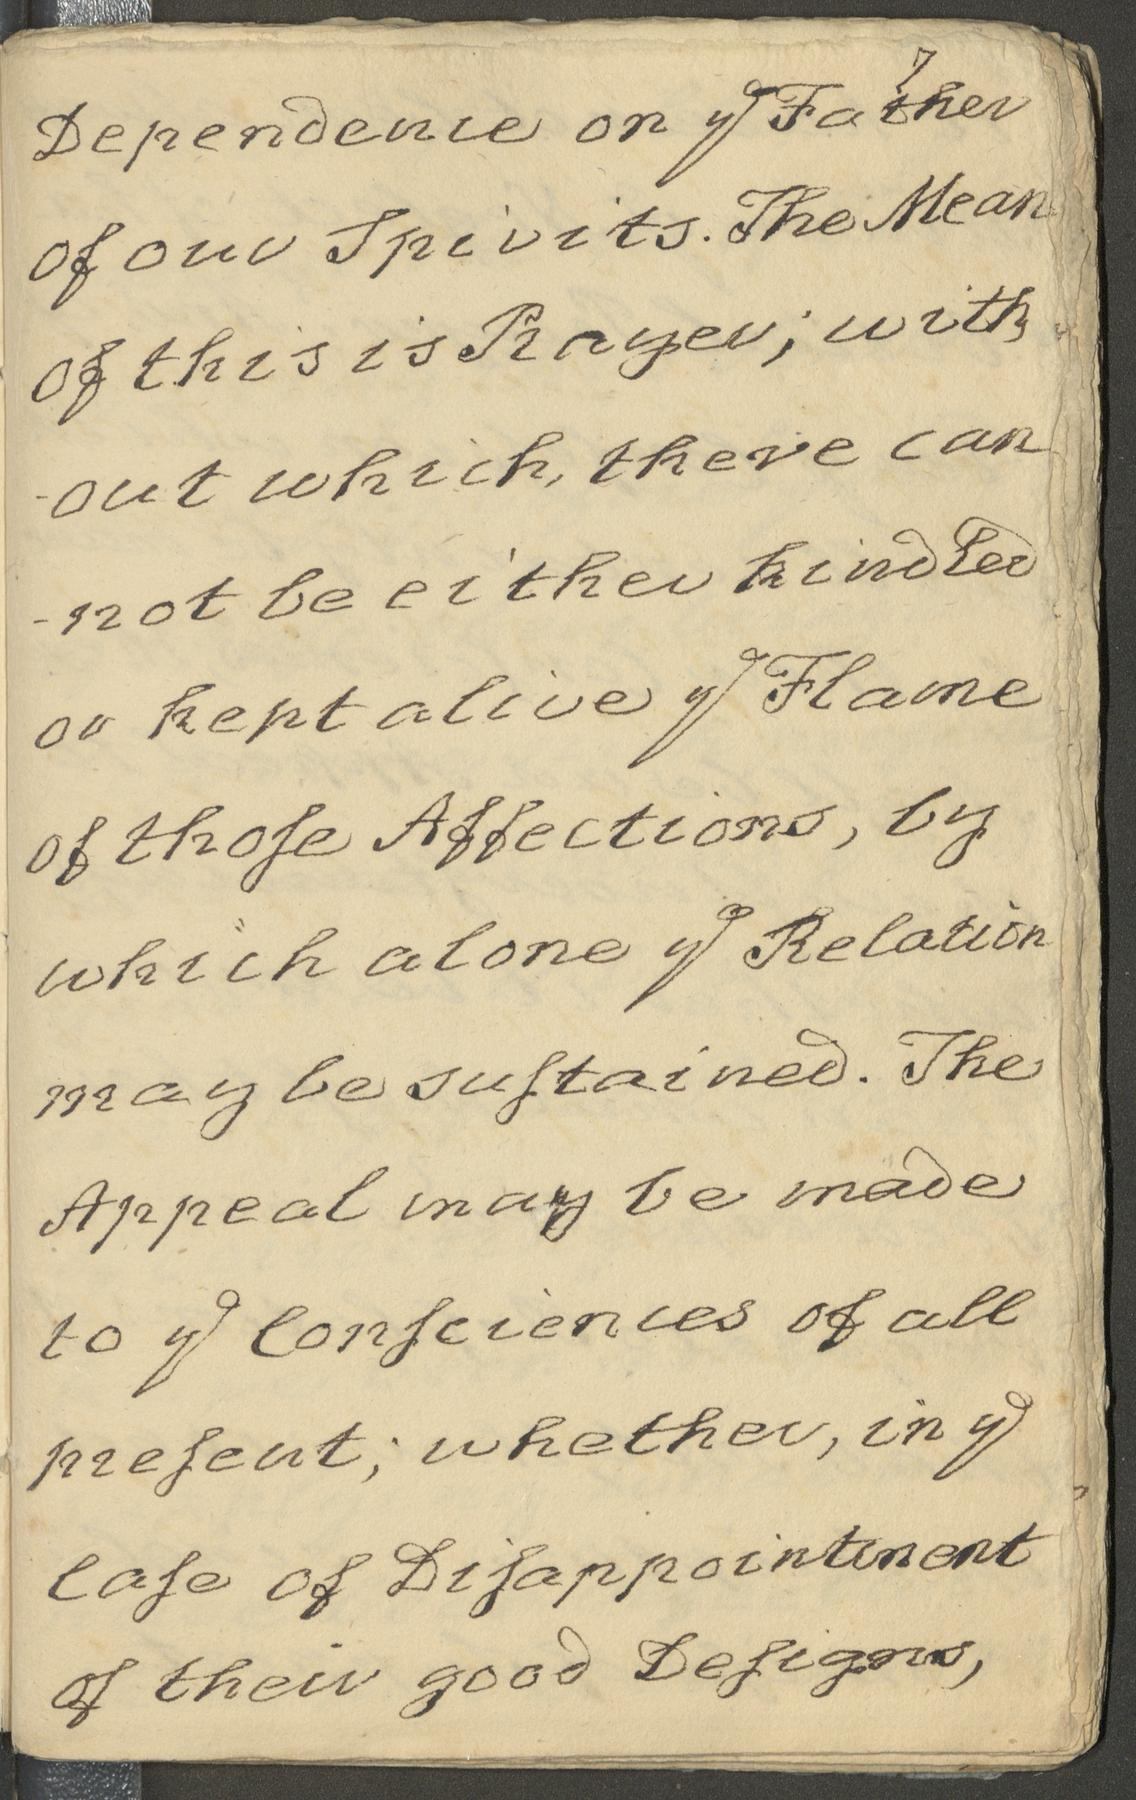 7
Dependence on yͤ Father
of our Spirits. The Mean
of this is Prayer; with
-out which, there can
-not be either kindled
or kept alive yͤ Flame
of thoſe Affections, by
which alone yͤ Relation
may be suſtained. The
Appeal may be made
to yͤ Conſciences of all
preſent; whether, in yͤ
Caſe of Diſappointment
of their good Deſigns,